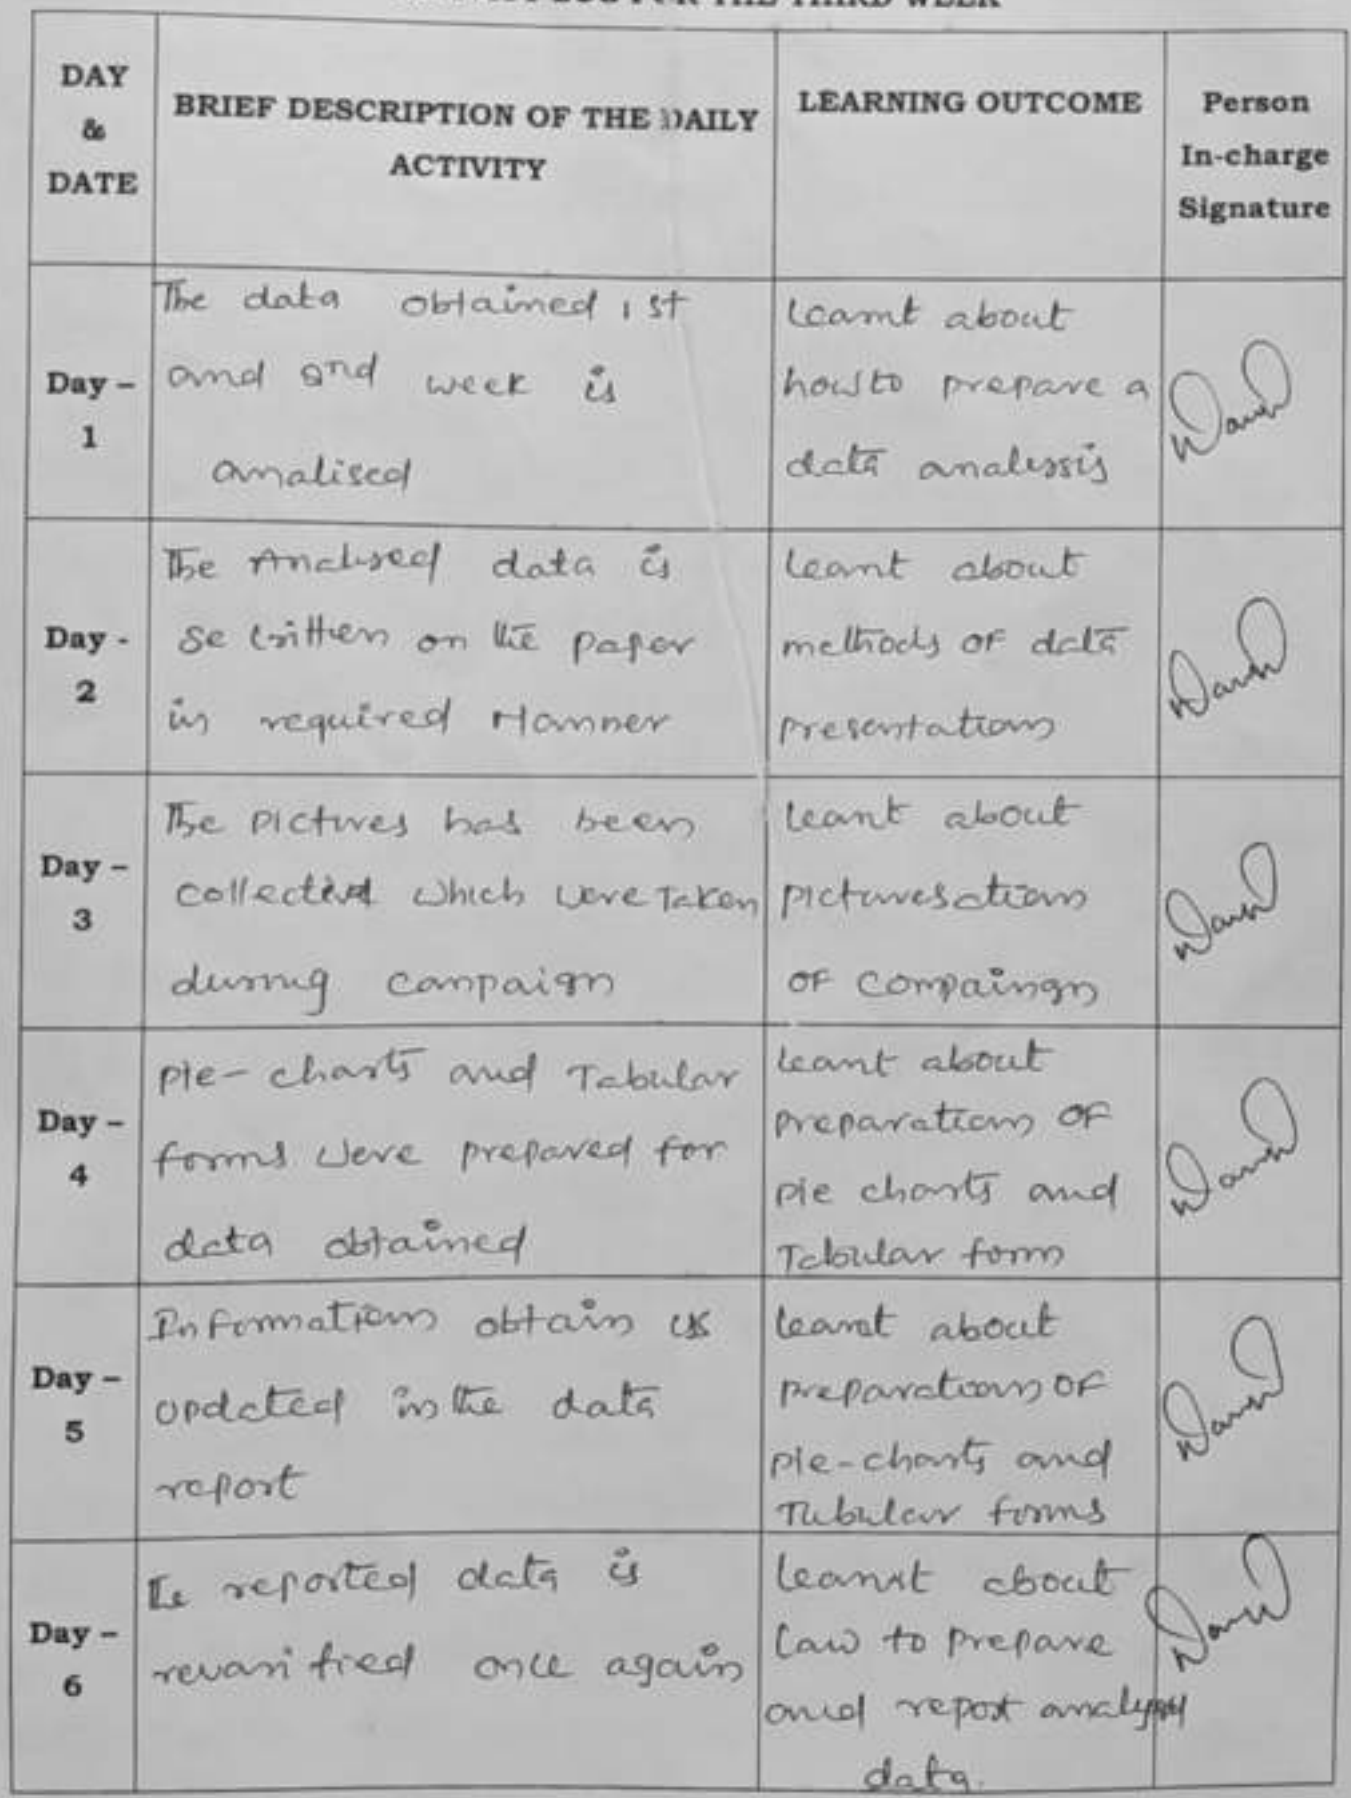 FOR THE THIRD WEEK
DAY
&
DATE
BRIEF DESCRIPTION OF THE DAILY
ACTIVITY
LEARNING OUTCOME
Person
In-charge
Signature
Day –
1
The data obtained 1st
and 2nd week is
analised
Learnt about
how to prepare a
data analysis
Day -
2
The Analised data is
written on the paper
in required Manner
learnt about
methods of data
presentation
Day –
3
The pictures has been
collected which were Taken
during campaign
learnt about
of compaingn
Day –
4
pie-charts and Tabular
forms were prepared for
data obtained
learnt about
preparation of
pie charts and
Tabular form
Day –
5
Information obtain is
updated in the data
report
learnt about
preparation of
pie-charts and
Tubular forms
Day –
6
reported data is
once again
learnt about
to prepare
and report
data.